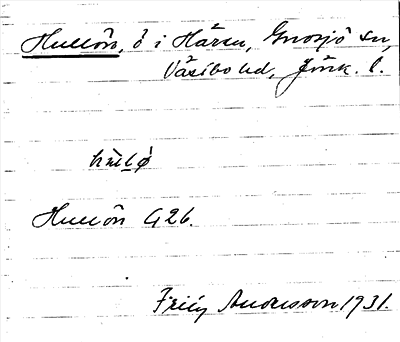 Hullön, ö i Hären, Gnosjö sn,
Västbo hd, Jönk. l.
Hullön G26.
Fritz Andersson 1931.